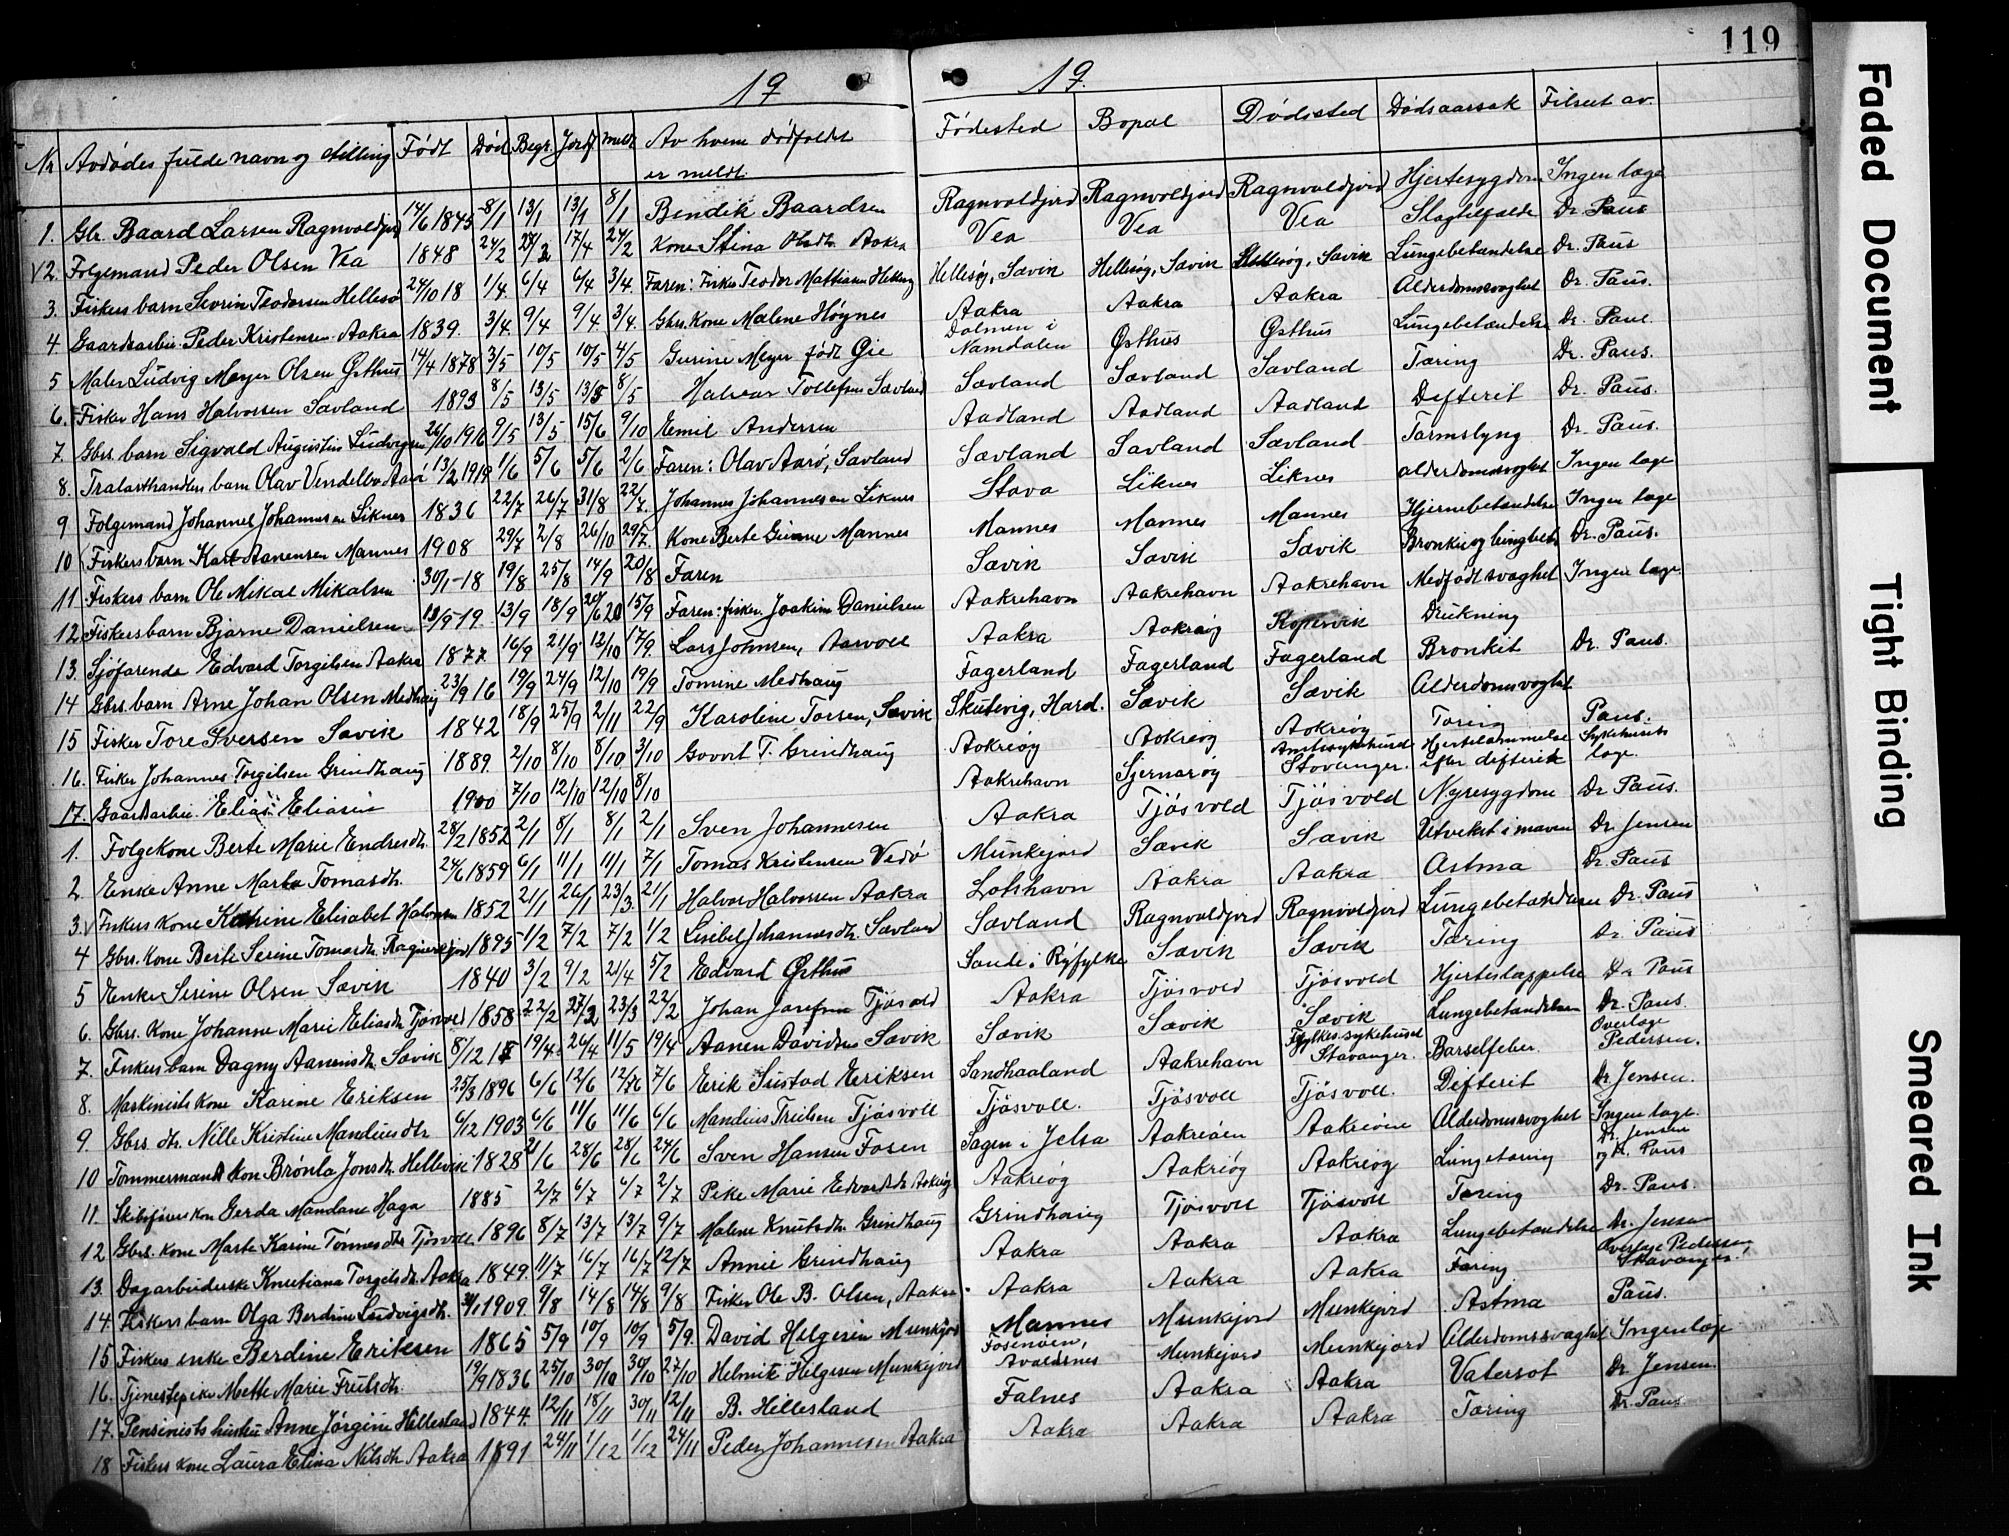 119
19
19.
Nr Avdødes fulde navn og stilling Født Død Begr. Jordf. Meldt Av hvem dødsfaldt er meldt. Fødested Bopæl Dødssted Dødsaarsak Tilseet av.
1. Gbr. Baard Larsen Ragnvaldjord 14/6 1845 8/1 13/1 13/1 8/1 Bendik Baardsen Ragnvaldjord Ragnvoldjord Ragnvaldjord Hjertesygdom Ingen læge
2. Følgemand Peder Olsen Vea 1848 24/2 27/2 17/4 24/2 Kone Stina Olsdtr. Aakra Vea Vea Vea Slagtilfælde Dr. Paus
3. Fiskers barn Severin Teodorsen Hellesø 24/10 18 1/4. 6/4 6/4 3/4. Faren: Fisker Teodor Mathiasen Hellesøy Hellesøy, Sævik Hellesøy, Sævik Hellesøy, Sævik Lungebetændelse Dr. Paus
4. Gaardsarbei. Peder Kristensen Aakra 1839. 3/4. 9/4 9/4 3/4. Gbrs. Kone Malene Høynes Aakra Aakra Aakra Alderdomssvaghet Dr. Paus.
5 Maler Ludvig Meyer Olsen Østhus 14/4 1878 3/5 10/5 10/5 4/5 Gurine Meyer født Øie Dalmen i Namdalen Østhus Østhus Lungebetændelse Dr. Paus.
6. Fisker Hans Halvorsen Sævland 1893 8/5 13/5 13/5 8/5 Halvor Tollefsen Sævland Sævland Sævland Sævland Tæring Dr. Paus.
7. Gbrs. barn Sigvald Augustin Ludvigsen 26/10 1916 9/5 13/5. 15/6 9/10 Emil Andersen Aadland Aadland Aadland Difterit Dr. Paus.
8. Tralasthandlers barn Olav Vendelbo Aarø 13/2 1919 1/6 5/6 5/6 2/6 Faren: Olav Aarø, Sævland Sævland Sævland Sævland Tarmslyng Dr. Paus.
9 Følgemand Johannes Johannesen Liknes 1836 22/7 26/7 31/8 22/7. Johannes Johannesen Liknes Stava Liknes Liknes Alderdomssvaghet Ingen læge
10 Fiskers barn Karl Aanensen Mannes 1908 29/7 2/8 26/10 29/7. Kone Berte Gurine Mannes Mannes Mannes Mannes Hjernebetændelse Ingen læge
11 Fiskers barn Ole Mikal Mikalsen 30/1-18 19/8 25/8 14/9 20/8 Faren Sævik Sævik Sævik Bronkit og lungebet. Dr. Paus.
12. Fiskers barn Bjarne Danielsen 13/5 19. 13/9 18/9 20/6 20 15/9 Faren: fisker Joakim Danielsen Aakrehavn Aakrehavn Aakrehavn Medfødt svaghet Ingen læge
13. Sjøfarende Edvard Torgilsen Aakra 1877 16/9 21/9 12/10 17/9. Lars Johnsen, Aarvoll Aakra Aakraøy Kopervik Drukning
14 Gbrs. barn Arne Johan Olsen Medhaug 23/9 16 19/9 24/9 12/10 19/9 Tomine Medhaug Fagerland Fagerland Fagerland Bronkit Dr. Paus.
15 Fisker Tore Iversen Sævik 1842 18/9 25/9 2/11 22/9 Karoline Torsen, Sævik Skutevig, Hard. Sævik Sævik Alderdomssvaghet
16. Fisker Johannes Torgilsen Grindhaug 1889. 2/10 8/10 8/10. 3/10 Govert T. Grindhaug Aakreøy Aakreøy Aakreøy Tæring Paus.
17. Gaardarbei. Elias Eliasen 1900 7/10 12/10 12/10 8/10 Aakrehavn Sjernarøy Amtssykehuset Stavanger. Hjertelammelse efter difterit Sykehusets læge.
1. Følgekone Berte Marie Endresdtr. 28/2 1852 2/1 8/1 8/1 2/1 Sven Johannesen Aakra Tjøsvold Tjøsvold Nyresygdom Dr. Paus.
2. Enke Anne Marta Tomasdtr. 24/6 1859 6/1 11/1 11/1 7/1 Tomas Kristensen Vedø Munkejord Sævik Sævik Utvekst i maven Dr. Jensen
3. Fiskers kone Katrine Elisabet Halvorsen 1852 21/1 26/1 23/3. 21/1 Halvor Halvorsen Aakra Lotshavn Aakra Aakra Astma Dr. Paus
4 Gbrs. kone Berte Serine Tomasdtr. Ragnvaldjord 1895 1/2 7/2 7/2 1/2 Lisebet Johannesdtr. Sævland Sævland Ragnvaldjord Ragnvaldjord Lungebetændelse Dr. Paus
5 Enke Serine Olsen Sævik 1840 3/2 9/2 21/4 5/2 Edvard Østhus Sande i Ryfylke Sævik Sævik Tæring Dr. Paus
6. Gbrs. Kone Johanne Marie Eliasdtr. Tjøsvold 1858 22/2 27/2 23/3 22/2 Johan Josefsen Tjøsvold Aakra Tjøsvold Tjøsvold Hjerteslappelse Dr. Paus
7. Fiskers barn Dagny Aanensdtr. Sævik 8/12 18 19/4 26/4 11/5 19/4 Aanen Davidsen Sævik Sævik Sævik Sævik Lungebetændelse Dr. Paus.
8. Maskinists kone Karine Eriksen 25/3 1896 6/6 12/6 12/6 7/6 Erik Sustad Eriksen Sandhaaland Aakrehavn Fylkessykehuset Stavanger. Barselfeber. Overlæge Pedersen.
9. Gbrs. dtr. Nille Kristine Mandiusdtr 6/12 1903 6/6 11/6 11/6 6/6 Mandius Truelsen Tjøsvoll Tjøsvoll. Tjøsvoll Tjøsvoll. Difterit Dr. Jensen.
10 Tommermands kone Brønla Jonsdtr. Hellevik 1828 21/6 28/6 28/6 24/6 Sven Hansen Fosen Sagen i Jelsa Aakreøen Aakreøen Alderdomssvaghet Ingen læge.
11. Skibsførers kone Gerda Mandane Haga 1885 2/7 6/7 6/7 2/7 Pike Marie Edvardsdtr. Aakreøy Aakreøy Aakreøy Aakreøy Lungetæring Dr. Jensen og Dr. Paus
12 Gbrs. kone Marte Karine Tønnesdtr Tjøsvoll 1896 8/7 13/7 13/7 9/7 Malene Knutsdtr. Grindhaug Grindhaug Tjøsvoll Tjøsvoll Tæring Dr. Paus.
13. Dagarbeiderske Kristiana Torgilsdtr. Aakra 1849. 11/7 16/7 16/7 12/7 Annie Grindhaug Aakra Aakra Aakra Lungebetændelse Dr. Jensen
14. Fiskers barn Olga Berdine Ludvigsdtr. 1909. 9/8 14/8 14/8 9/8 Fisker Ole B. Olsen, Aakra. Aakra Aakra Aakra Tæring Overlæge Pedersen, Stavanger.
15 Fiskers enke Berdine Eriksen 1865 5/9 10/9 10/9 5/9. David Helgesen Munkejord Mannes Munkejord Munkejord Astma Paus.
16. Tjenestepike Mette Marie Frutsdtr. 19/9 1836 25/10 30/10 30/10 27/10 Helmik Helgesen Munkejord Fosenøen, Avaldsnes Munkejord Munkejord Alderdomssvaghet Ingen læge
17. Pensionists hustru Anne Jørgine Hillesland 1844. 12/11 18/11 30/11 12/11 B. Hillesland Falnes Aakra Aakra Vatersot Dr. Jensen.
18 Fiskers kone Laura Elina Nilsdtr Aakra 1891 24/11 1/12 1/12 24/11 Peder Johannesen Aakra Aakra Aakra Aakra Tæring Dr. Paus
Faded Document
Tight Binding
Smeared Ink